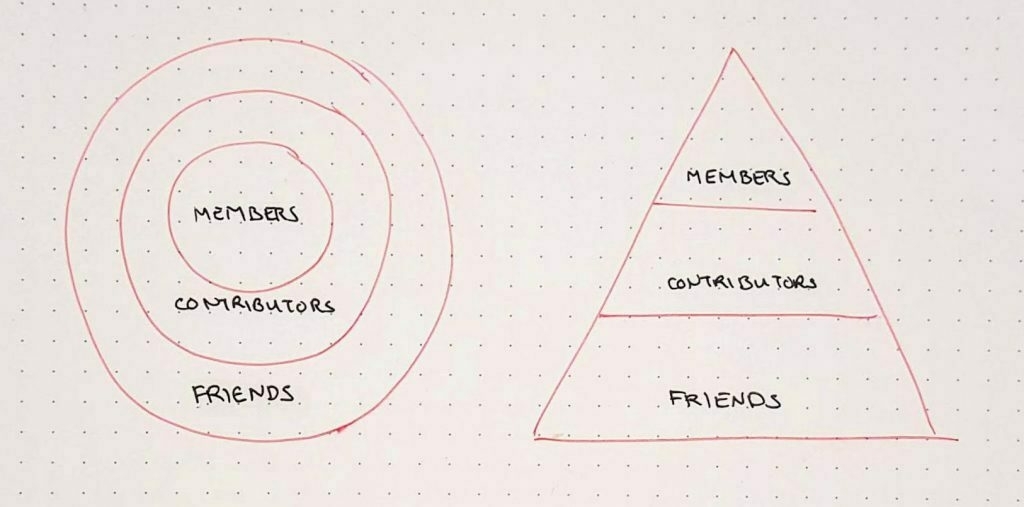 MEMBERS
CONTRIBUTORS
FRIENDS
MEMBERS
CONTRIBUTORS
FRIENDS